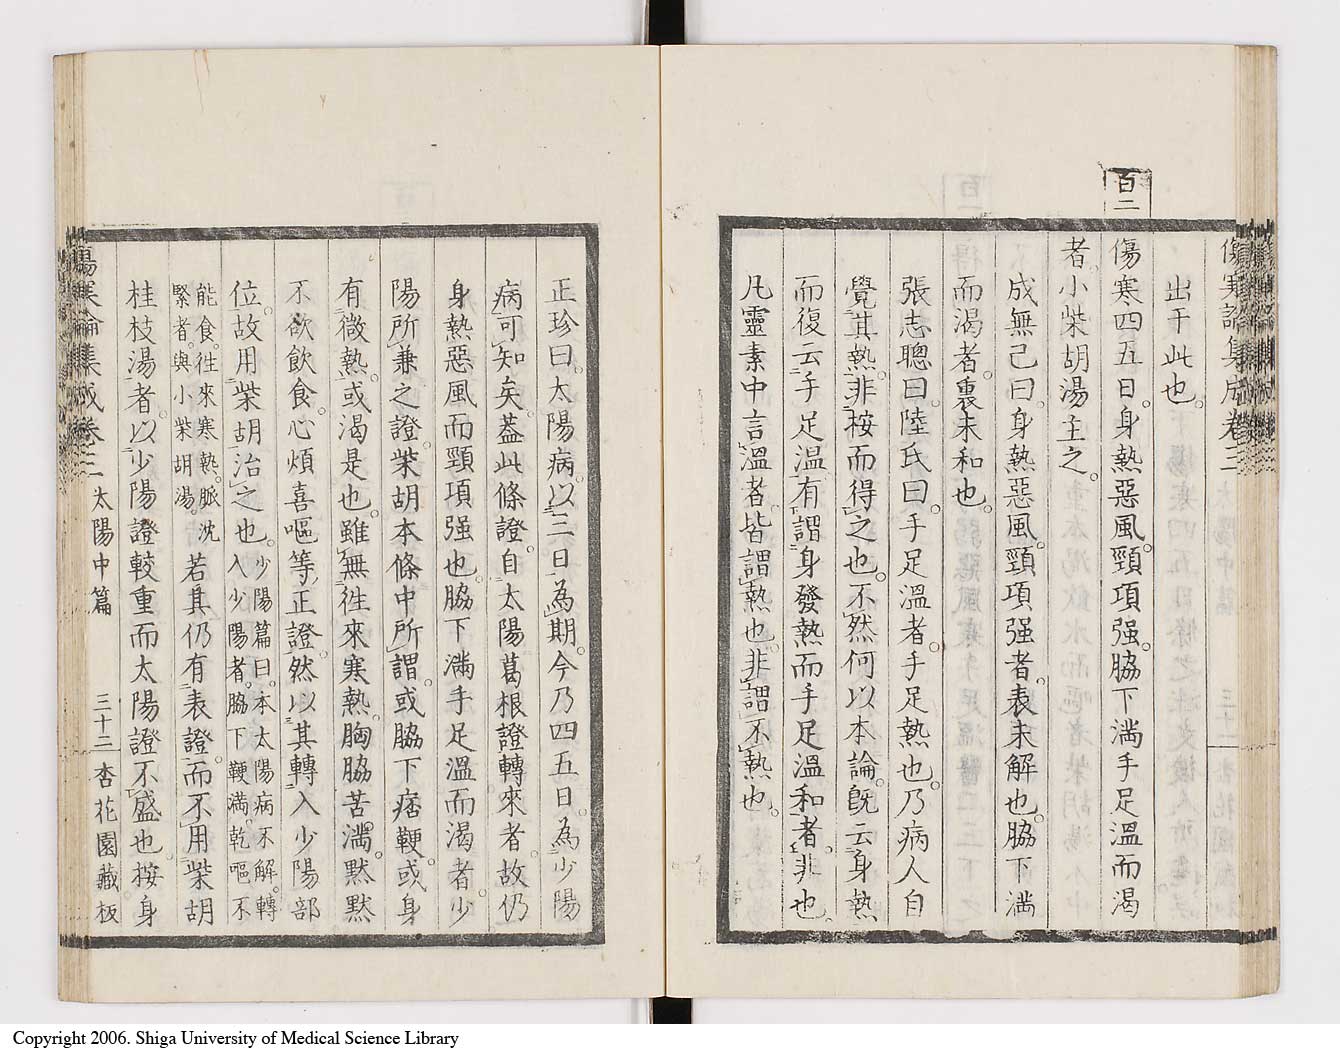 百二
出于此也。
傷寒四五日。身熱惡風。頸項强。脇下滿手足溫而渴
者。小柴胡湯主之。
成無己曰。身熱惡風。頸項强者。表未解也。脇下滿
而渴者。裏未和也。
張志聰曰。陸氏曰。手足溫者。手足熱也。乃病人自
覺其熱。非按而得之也。不然何以本論。既云身熱
而復云手足溫。有謂身發熱而手足溫和者。非也。
凡靈素中言溫者。皆謂熱也。非謂不熱也。
正珍曰。太陽病。以三日為期。今乃四五日。為少陽
病可知矣。蓋此條證。自太陽葛根證轉來者。故仍
身熱惡風而頸項强也。脇下滿手足溫而渴者。少
陽所兼之證。柴胡本條中所謂。或脇下痞鞕。或身
有微熱。或渴是也。雖無往來寒熱。胸脇苦滿。默默
不欲飲食。心煩喜嘔等正證。然以其轉入少陽部
位。故用柴胡治之也。少陽篇曰。本太陽病不解。轉
入少陽者。脇下鞕滿。乾嘔不
能食。往來寒熱。脈沈
緊者。與小柴胡湯。若其仍有表證。而不用柴胡
桂枝湯者。以少陽證較重而太陽證不盛也。按身
傷寒論集成卷三 太陽中篇 三十三 杏花園藏板